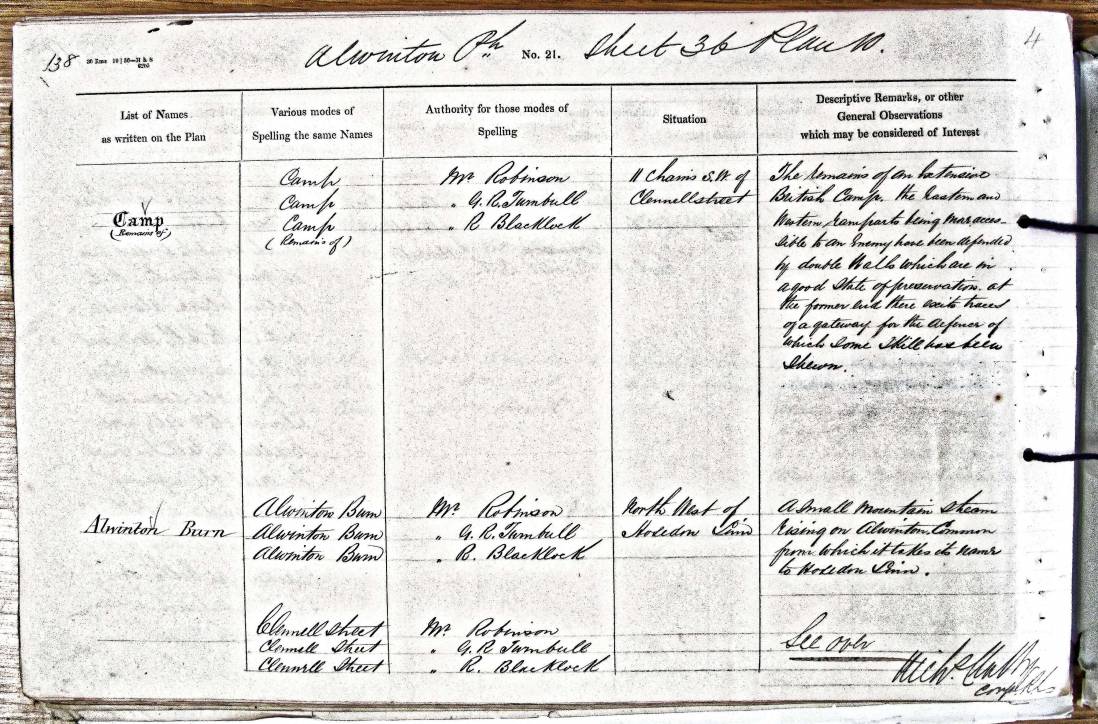 138
Alwinton Ph No. 21. Sheet 36 Plan 10.
4
List of Names as written on the Plan
Various modes of Spelling the same Names
Authority for those modes of Spelling
Situation
Descriptive Remarks, or other General Observations which may be considered of Interest
Camp
(Remains of)
Camp
Camp
Camp
(Remains of)
Mr. Robinson
" G. R. Turnbull
" R Blacklock
11 Chains S.W. of
Clennell street
The remains of an Extensive
British Camp. the Eastern and
Western ramparts being mor acces-
sible to an Enemy have been defended
by double Walls which are in
a good State of preservation. at
the former end there exits traces
of a gateway for the defence of
which Some Skill has been
Shewn.
Alwinton Burn
Alwinton Burn
Alwinton Burn
Alwinton Burn
Mr. Robinson
" G. R. Turnbull
" R. Blacklock
North West of
Hosedon Linn
A Small Mountain Stream
Rising on Alwinton Common
from which it takes its name
to Hosedon Linn.
Clennell Street
Clennell Street
Clennell Street
Mr. Robinson
" G. R. Turnbull
" R. Blacklock
See over